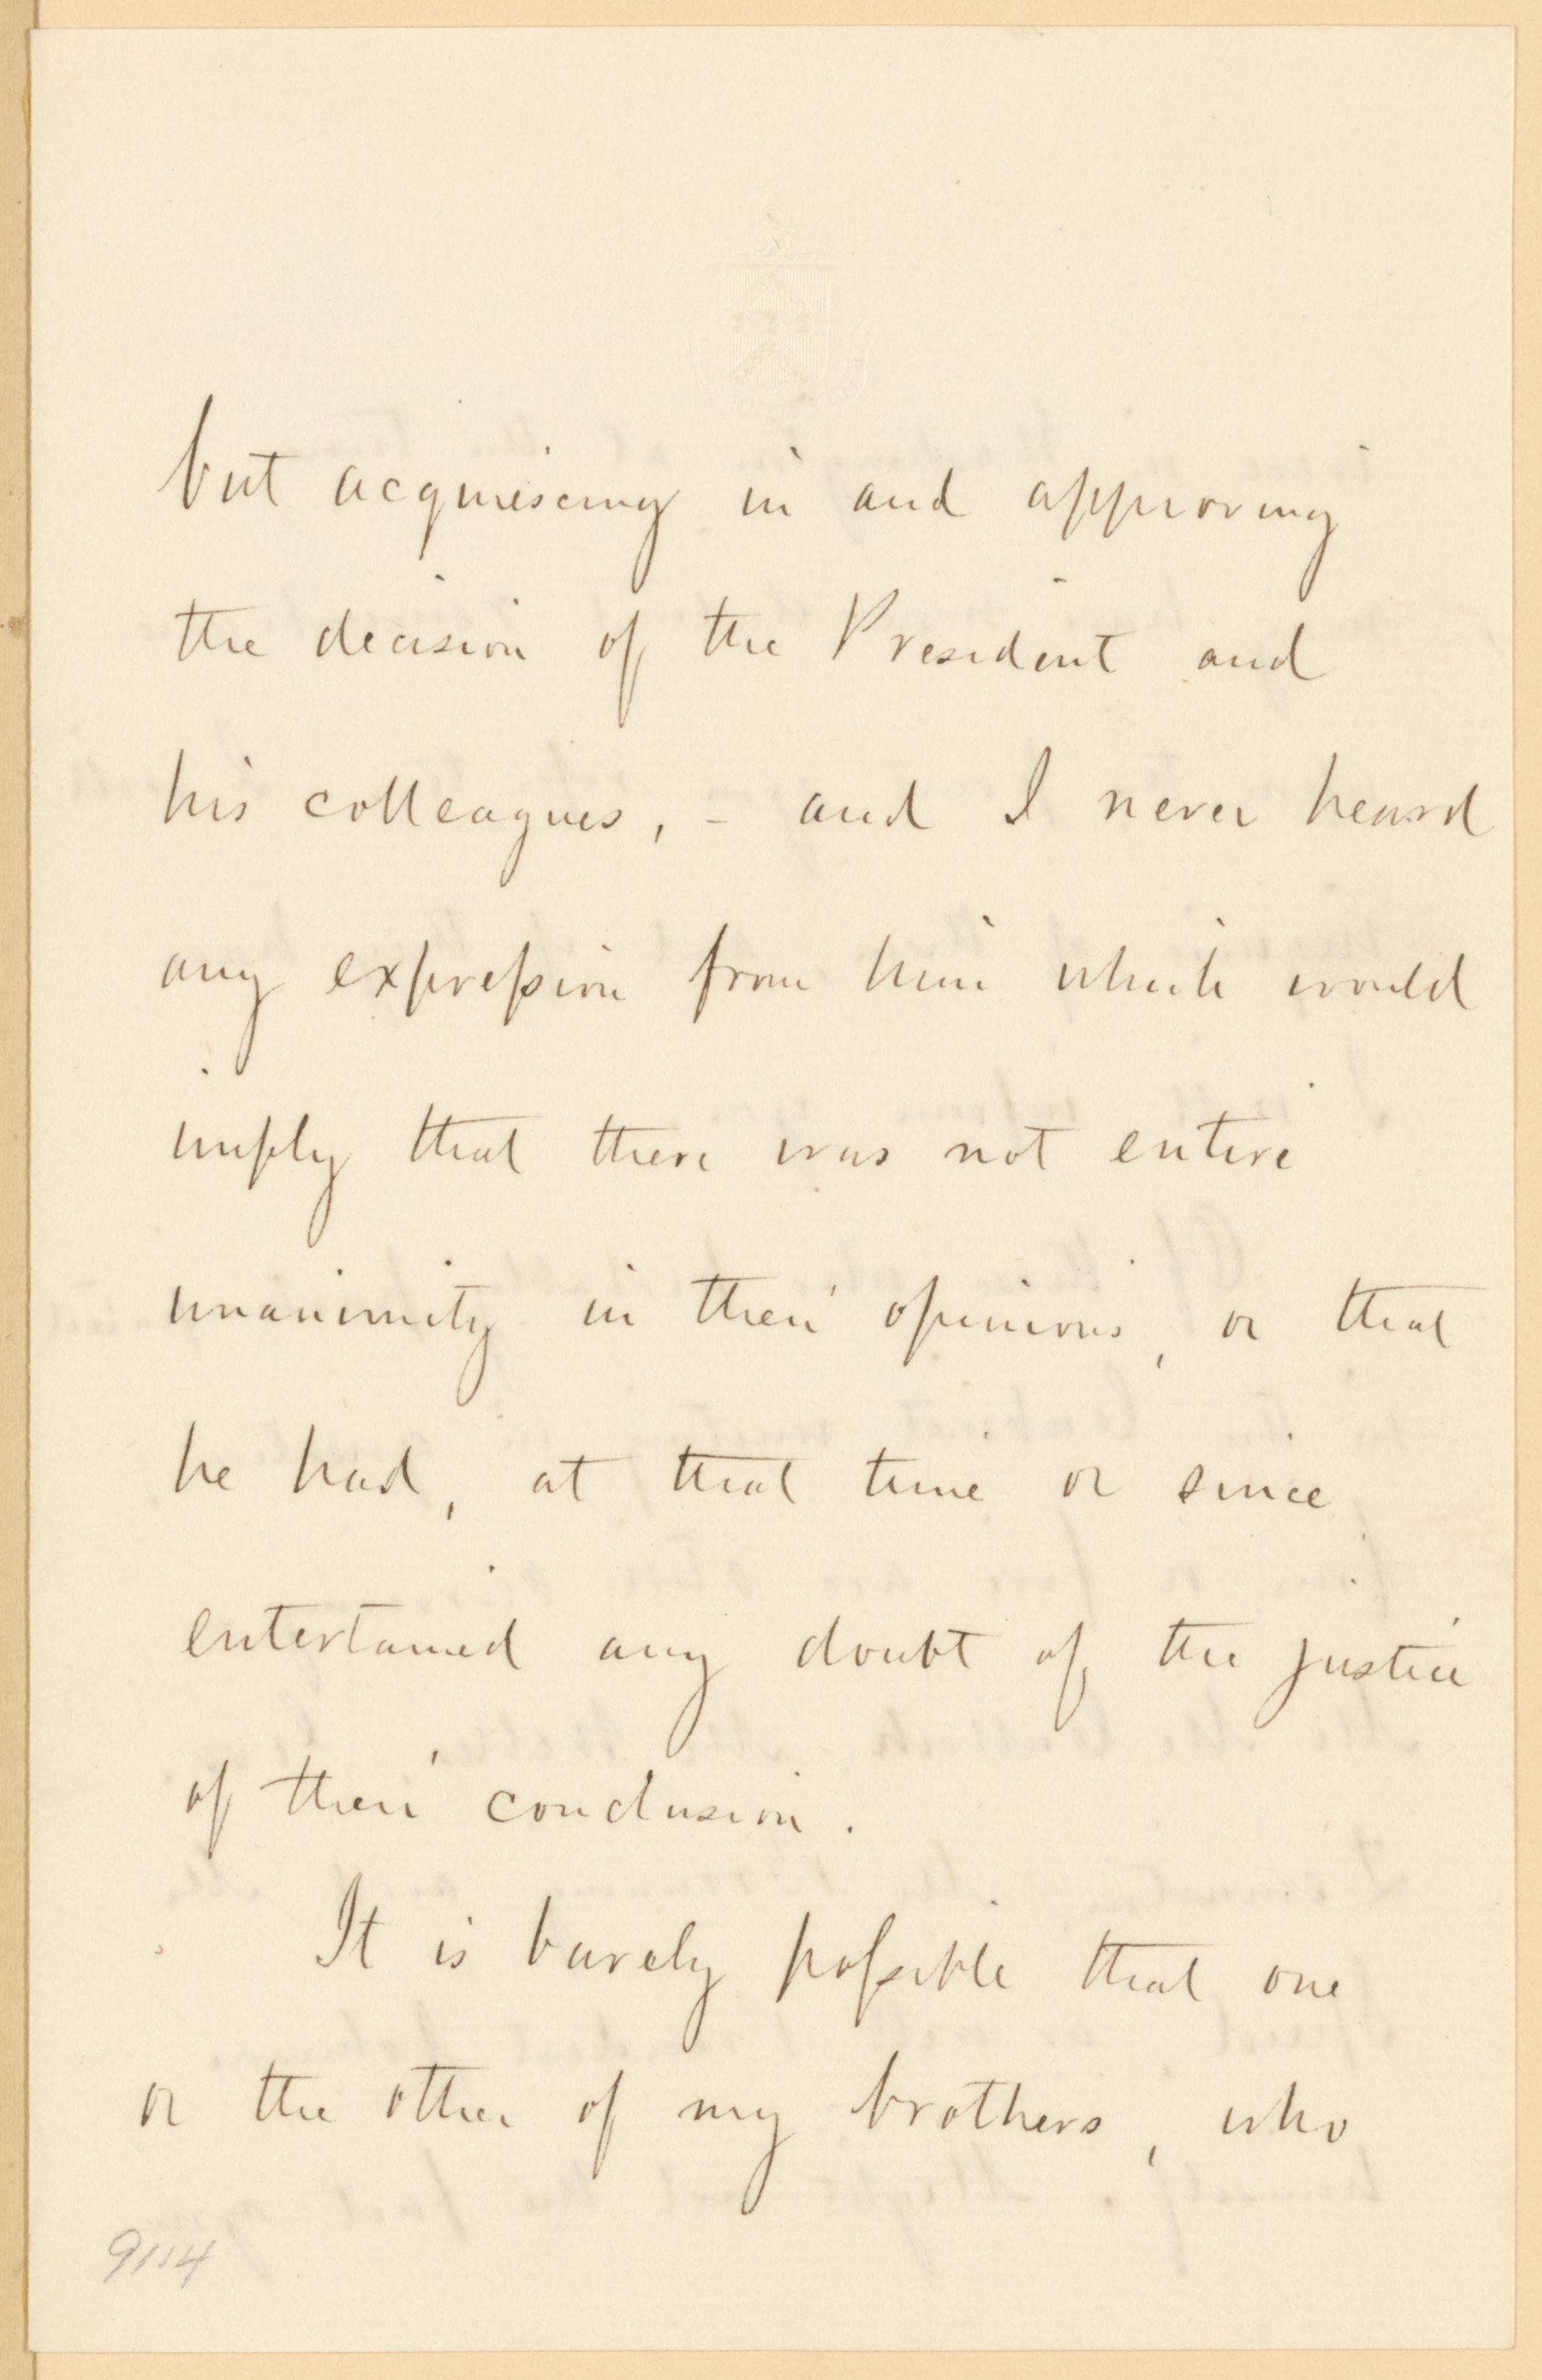 but acquiescing in and approving
the decision of the President and
his colleagues, - and I never heard
any expression from him which would
imply that there was not entire
unanimity in their opinions, or that
he had, at that time or since,
entertained any doubt of the justice
of their conclusion.
It is barely possible that one
or the other of my brothers, who
9114